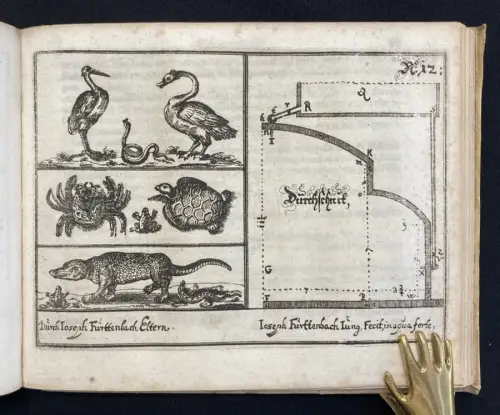 No. 12:
Durchschnit,
Durch Ioseph Fürttenbach Eltern.
Ioseph Fürttenbach Iung. Fecit, in aqua forte,